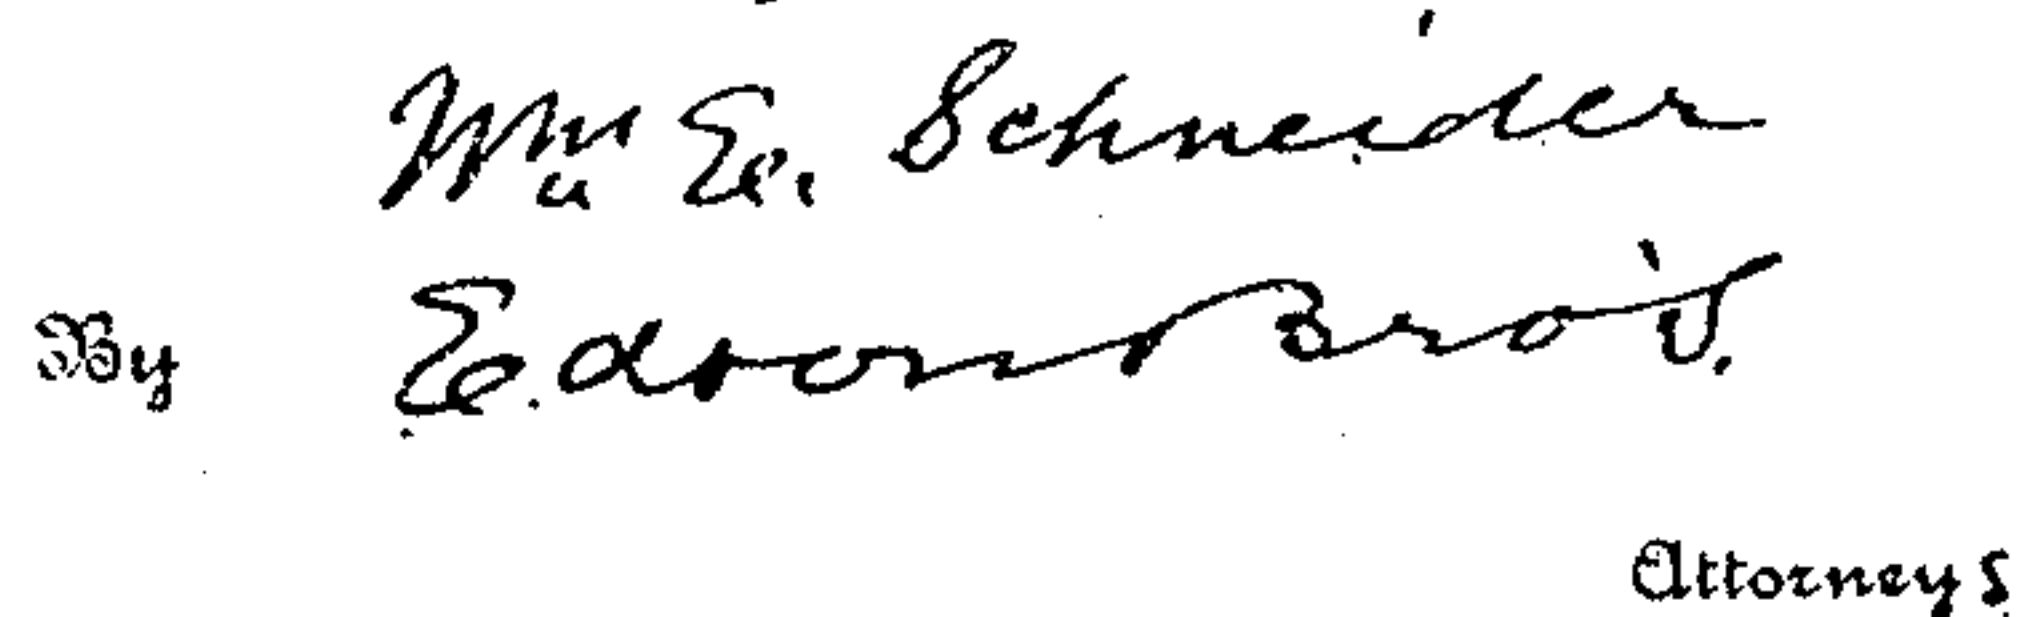 Wm E. Schneider
By Edson Bro's.
Attorneys